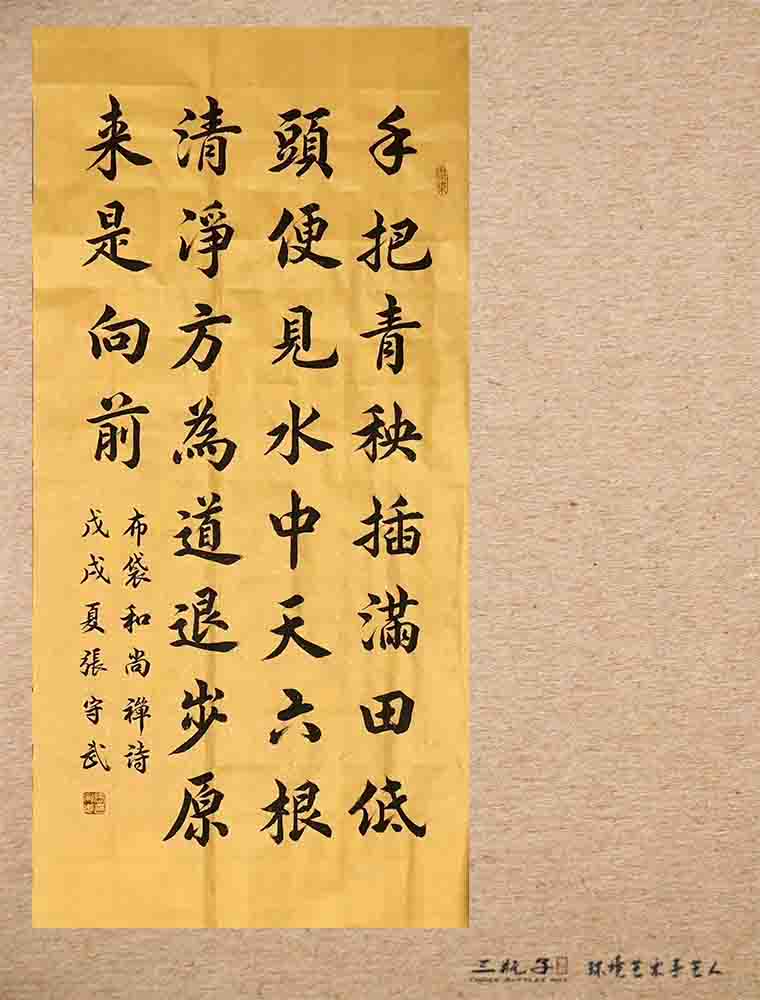 手把青秧插滿田低
頭便見水中天六根
清淨方為道退步原
来是向前
布袋和尚禅诗
戊戌夏張守武
三瓶子 环境艺术手艺人